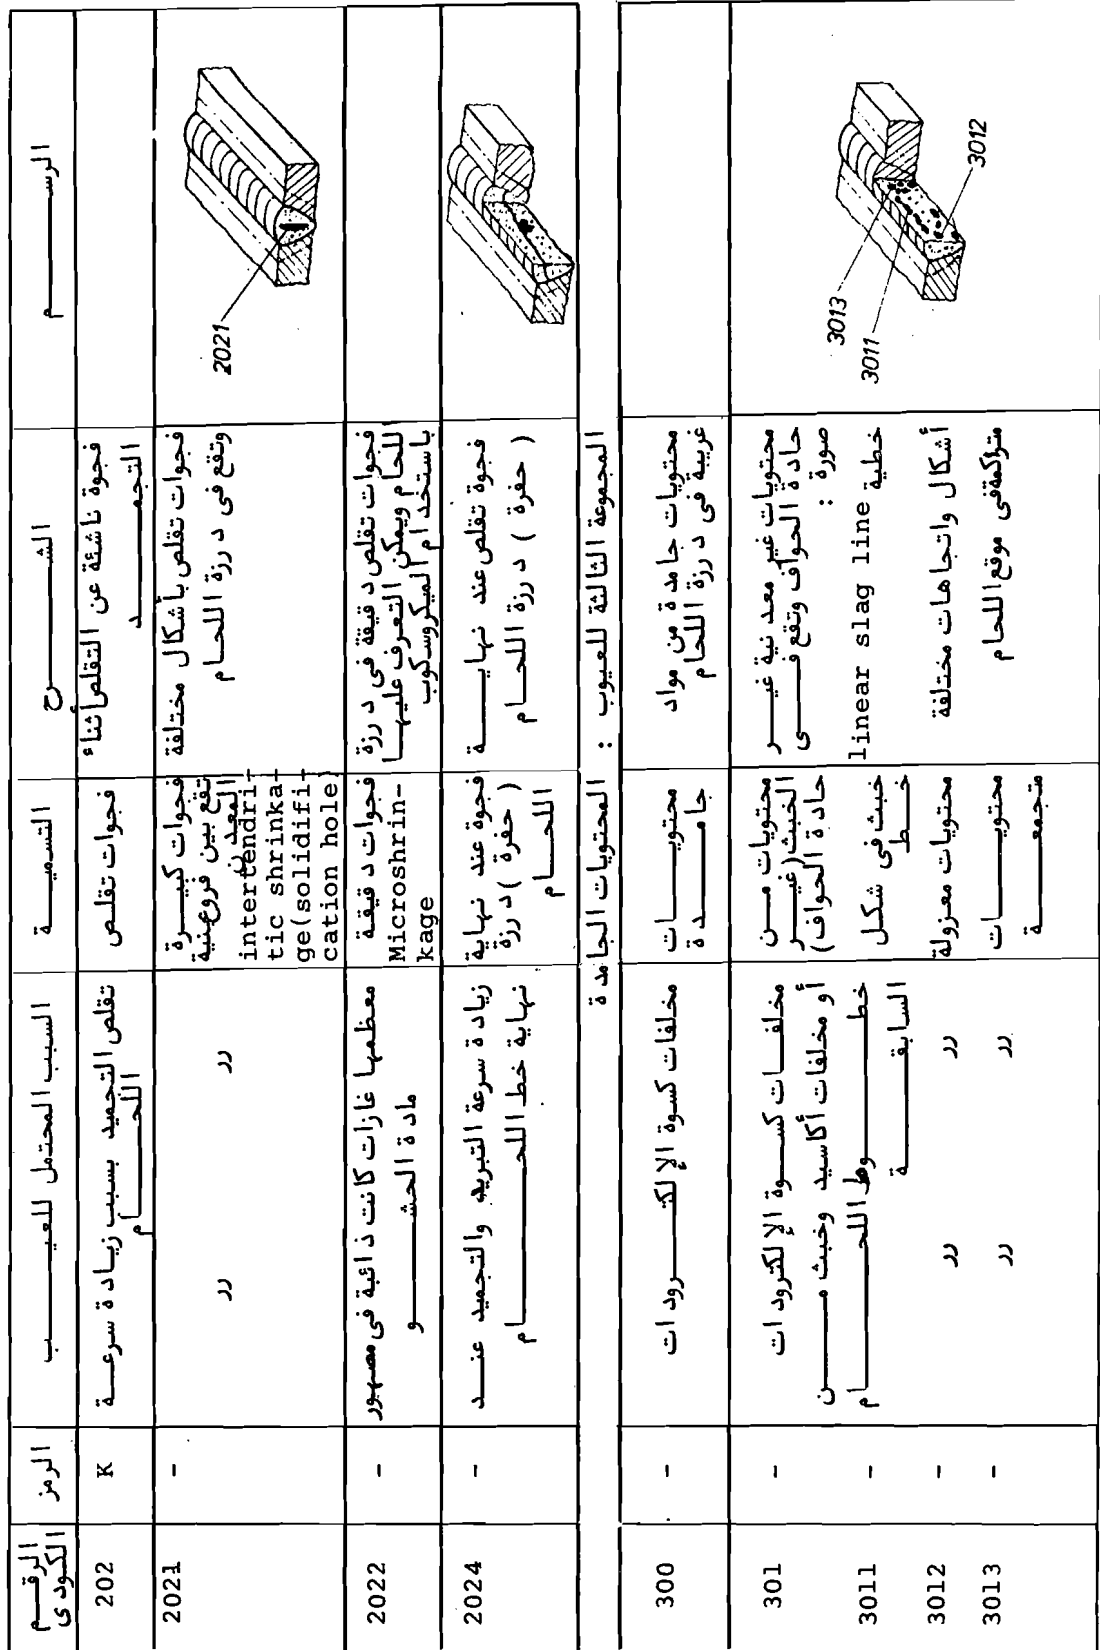 الرقم الكودى
الرمز
السبب المحتمل للعيب
التسمية
الشرح
الرسم
202
K
تقلص التجميد بسبب زيادة سرعة
اللحام
فجوات تقلص
فجوة ناشئة عن التقلص أثناء
التجمد
2021
-
〃 〃
فجوات كبيرة
تقع بين فروع بنية
المعدن
interdendri-
tic shrinka-
ge(solidifi-
cation hole)
فجوات تقلص بأشكال مختلفة
وتقع فى درزة اللحام
2021
2022
-
معظمها غازات كانت ذائبة فى مصهور
مادة الحشو
فجوات دقيقة
Microshrin-
kage
فجوات تقلص دقيقة فى درزة
اللحام ويمكن التعرف عليها
باستخدام الميكروسكوب
2024
-
زيادة سرعة التبريد والتجميد عند
نهاية خط اللحام
فجوة عند نهاية
( حفرة ) درزة
اللحام
فجوة تقلص عند نهاية
( حفرة ) درزة اللحام
المجموعة الثالثة للعيوب : المحتويات الجامدة
300
-
مخلفات كسوة الإلكترودات
محتويات
جامدة
محتويات جامدة من مواد
غريبة فى درزة اللحام
301
-
مخلفات كسوة الإلكترودات
أو مخلفات أكاسيد وخبث من
خطوط اللحام
السابقة
محتويات من
الخبث (غير
حادة الحواف)
محتويات غير معدنية غير
حادة الحواف وتقع فى
صورة :
3011
-
خبث فى شكل
خط
خطية linear slag line
3012
-
〃 〃
محتويات معزولة
أشكال واتجاهات مختلفة
3013
-
〃 〃
محتويات
متجمعة
متراكمة فى موقع اللحام
3013
3011
3012